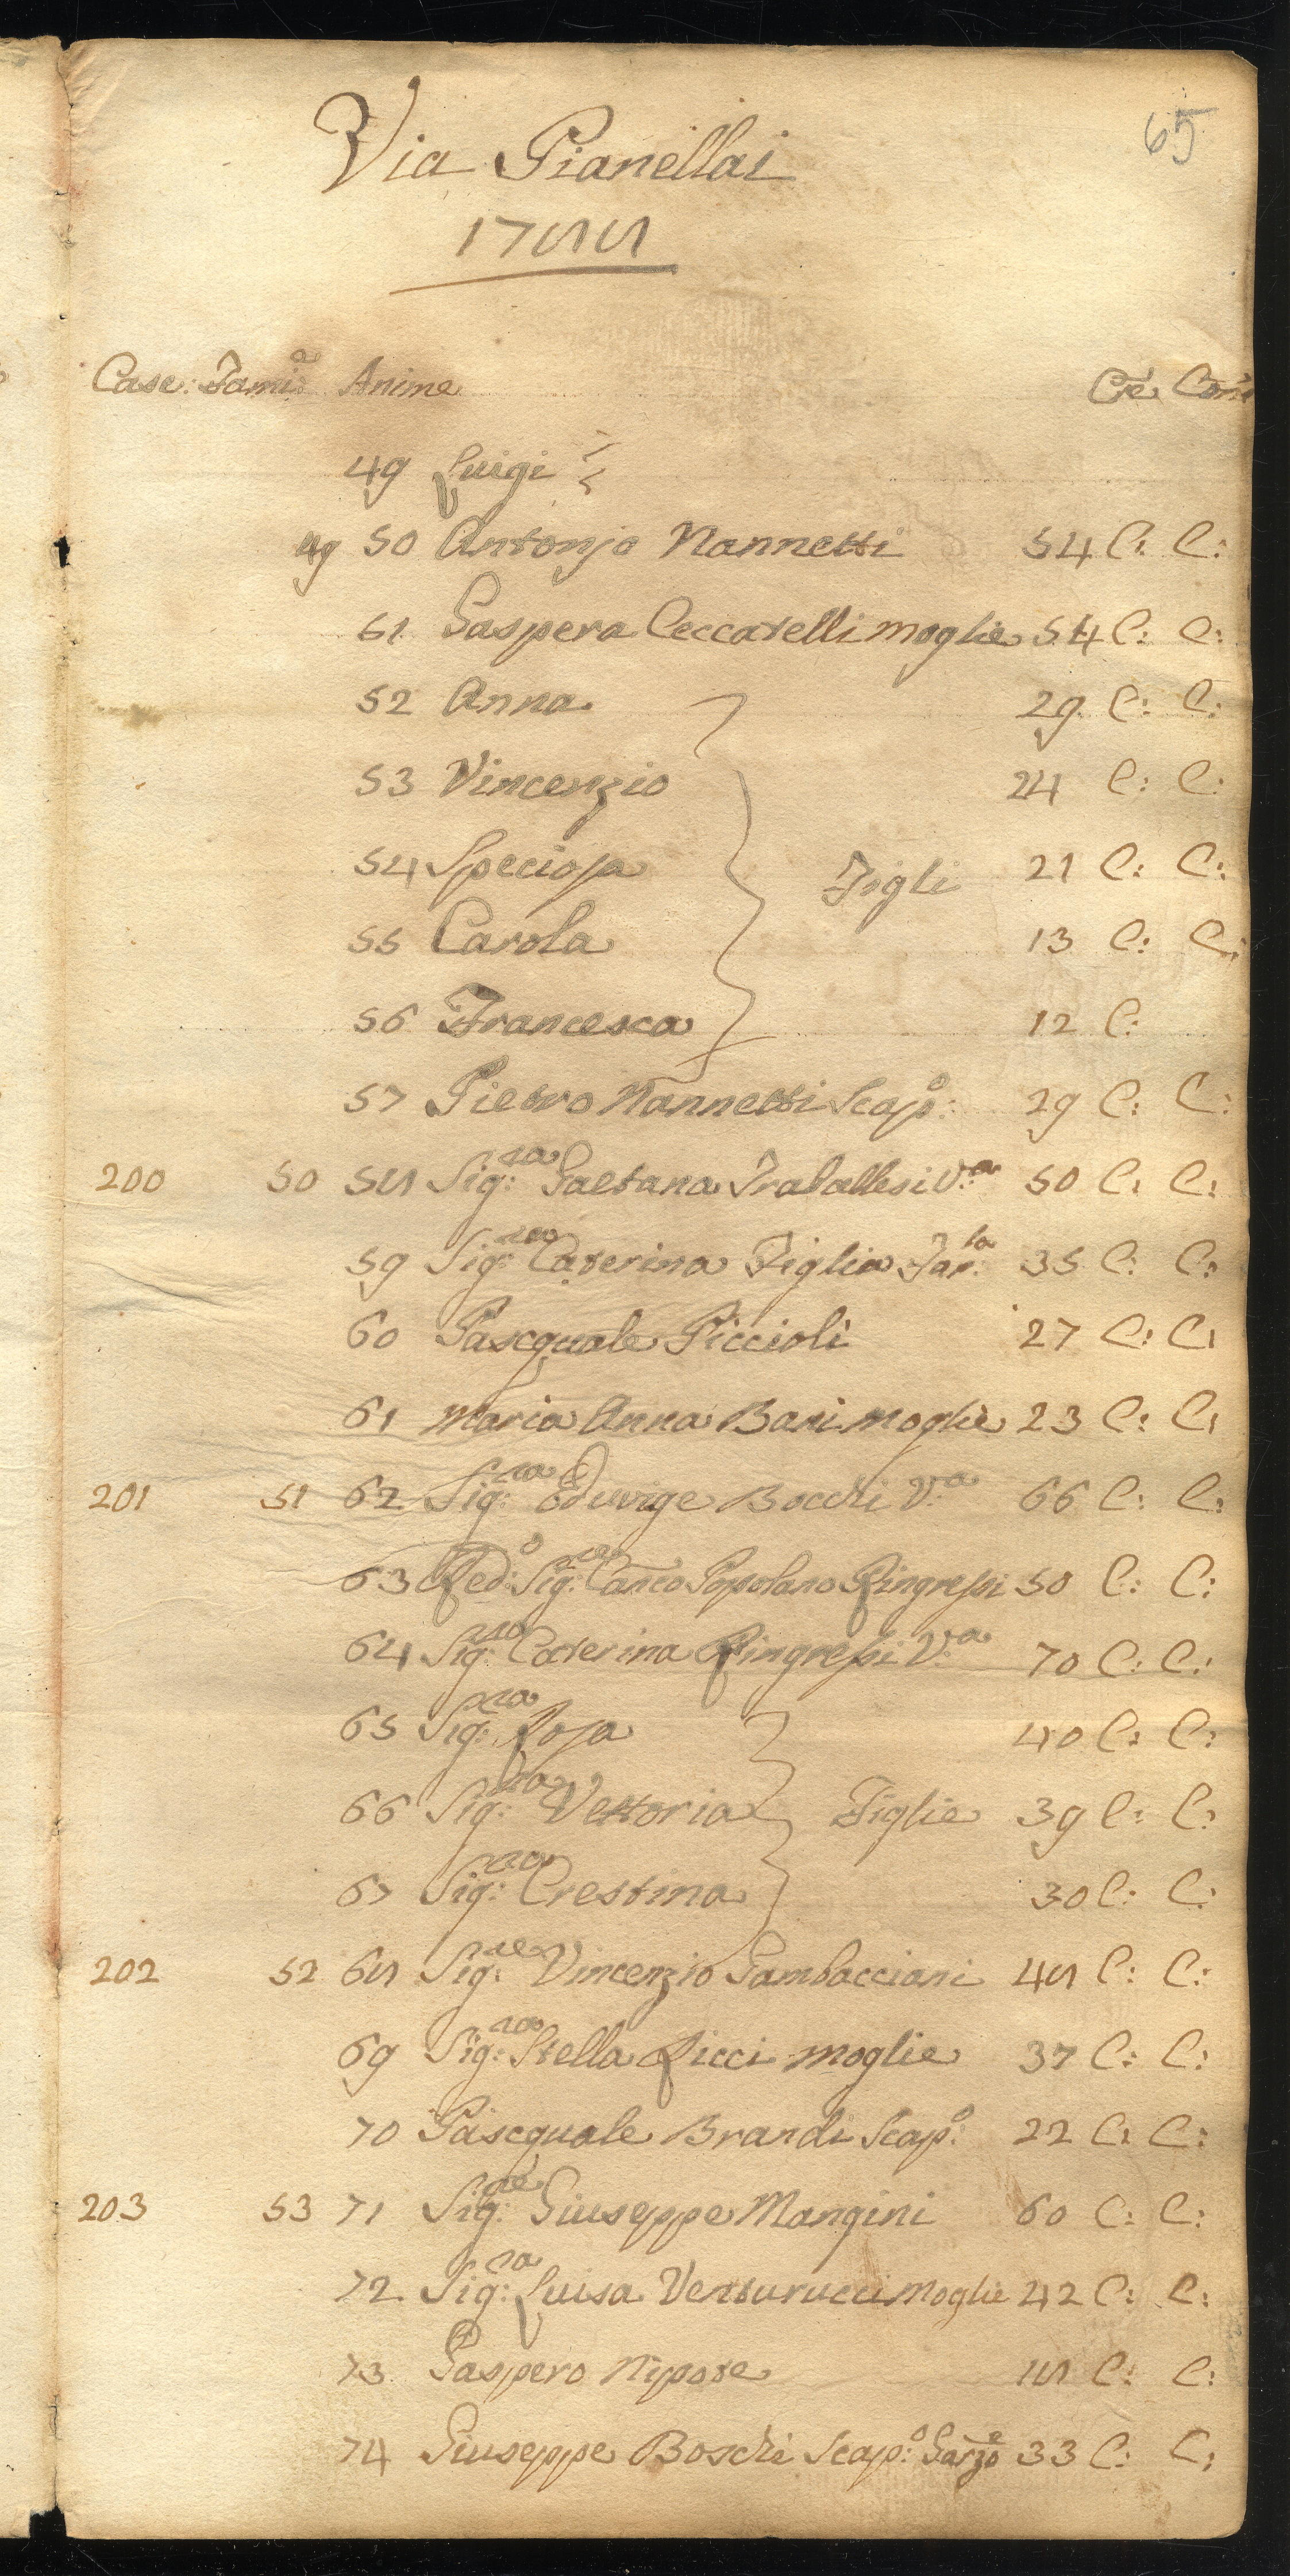 65
Via Pianellai
1788
Case: Fami:e Anime Cre: Com:
49 Luigi
49 50 Antonjo Nannetti 54 C: C:
51 Gaspera Ceccatelli moglie 54 C: C:
52 Anna 29 C: C:
53 Vincenzio 24 C: C:
54 Speciosa Figli 21 C: C:
55 Carola 13 C: C:
56 Francesca 12 C:
57 Pietro Nannetti Scap:o 29 C: C:
200 50 58 Sig:ra Gaetana Traballesi V:a 50 C: C:
59 Sig:ra Caterina Figlia Fan:la 35 C: C:
60 Pascquale Piccioli 27 C: C:
61 Maria Anna Bani moglie 23 C: C:
201 51 62 Sig:ra Eduvige Bocchi V:a 66 C: C:
63 Red:o Sig:re Canco Popolano Ringressi 50 C: C:
64 Sig:ra Caterina Ringressi V:a 70 C: C:
65 Sig:ra Rosa 40 C: C:
66 Sig:ra Vettoria Figlie 39 C: C:
67 Sig:ra Crestina 30 C: C:
202 52 68 Sig:re Vincenzio Gambacciani 48 C: C:
69 Sig:ra Stella Ricci moglie 37 C: C:
70 Pascquale Brandi Scap:o 22 C: C:
203 53 71 Sig:re Giuseppe Mangini 60 C: C:
72 Sig:ra Luisa Venturucci Moglie 42 C: C:
73 Gaspero Nipote 18 C: C:
74 Giuseppe Boschi Scap:o Garzo:e 33 C: C: